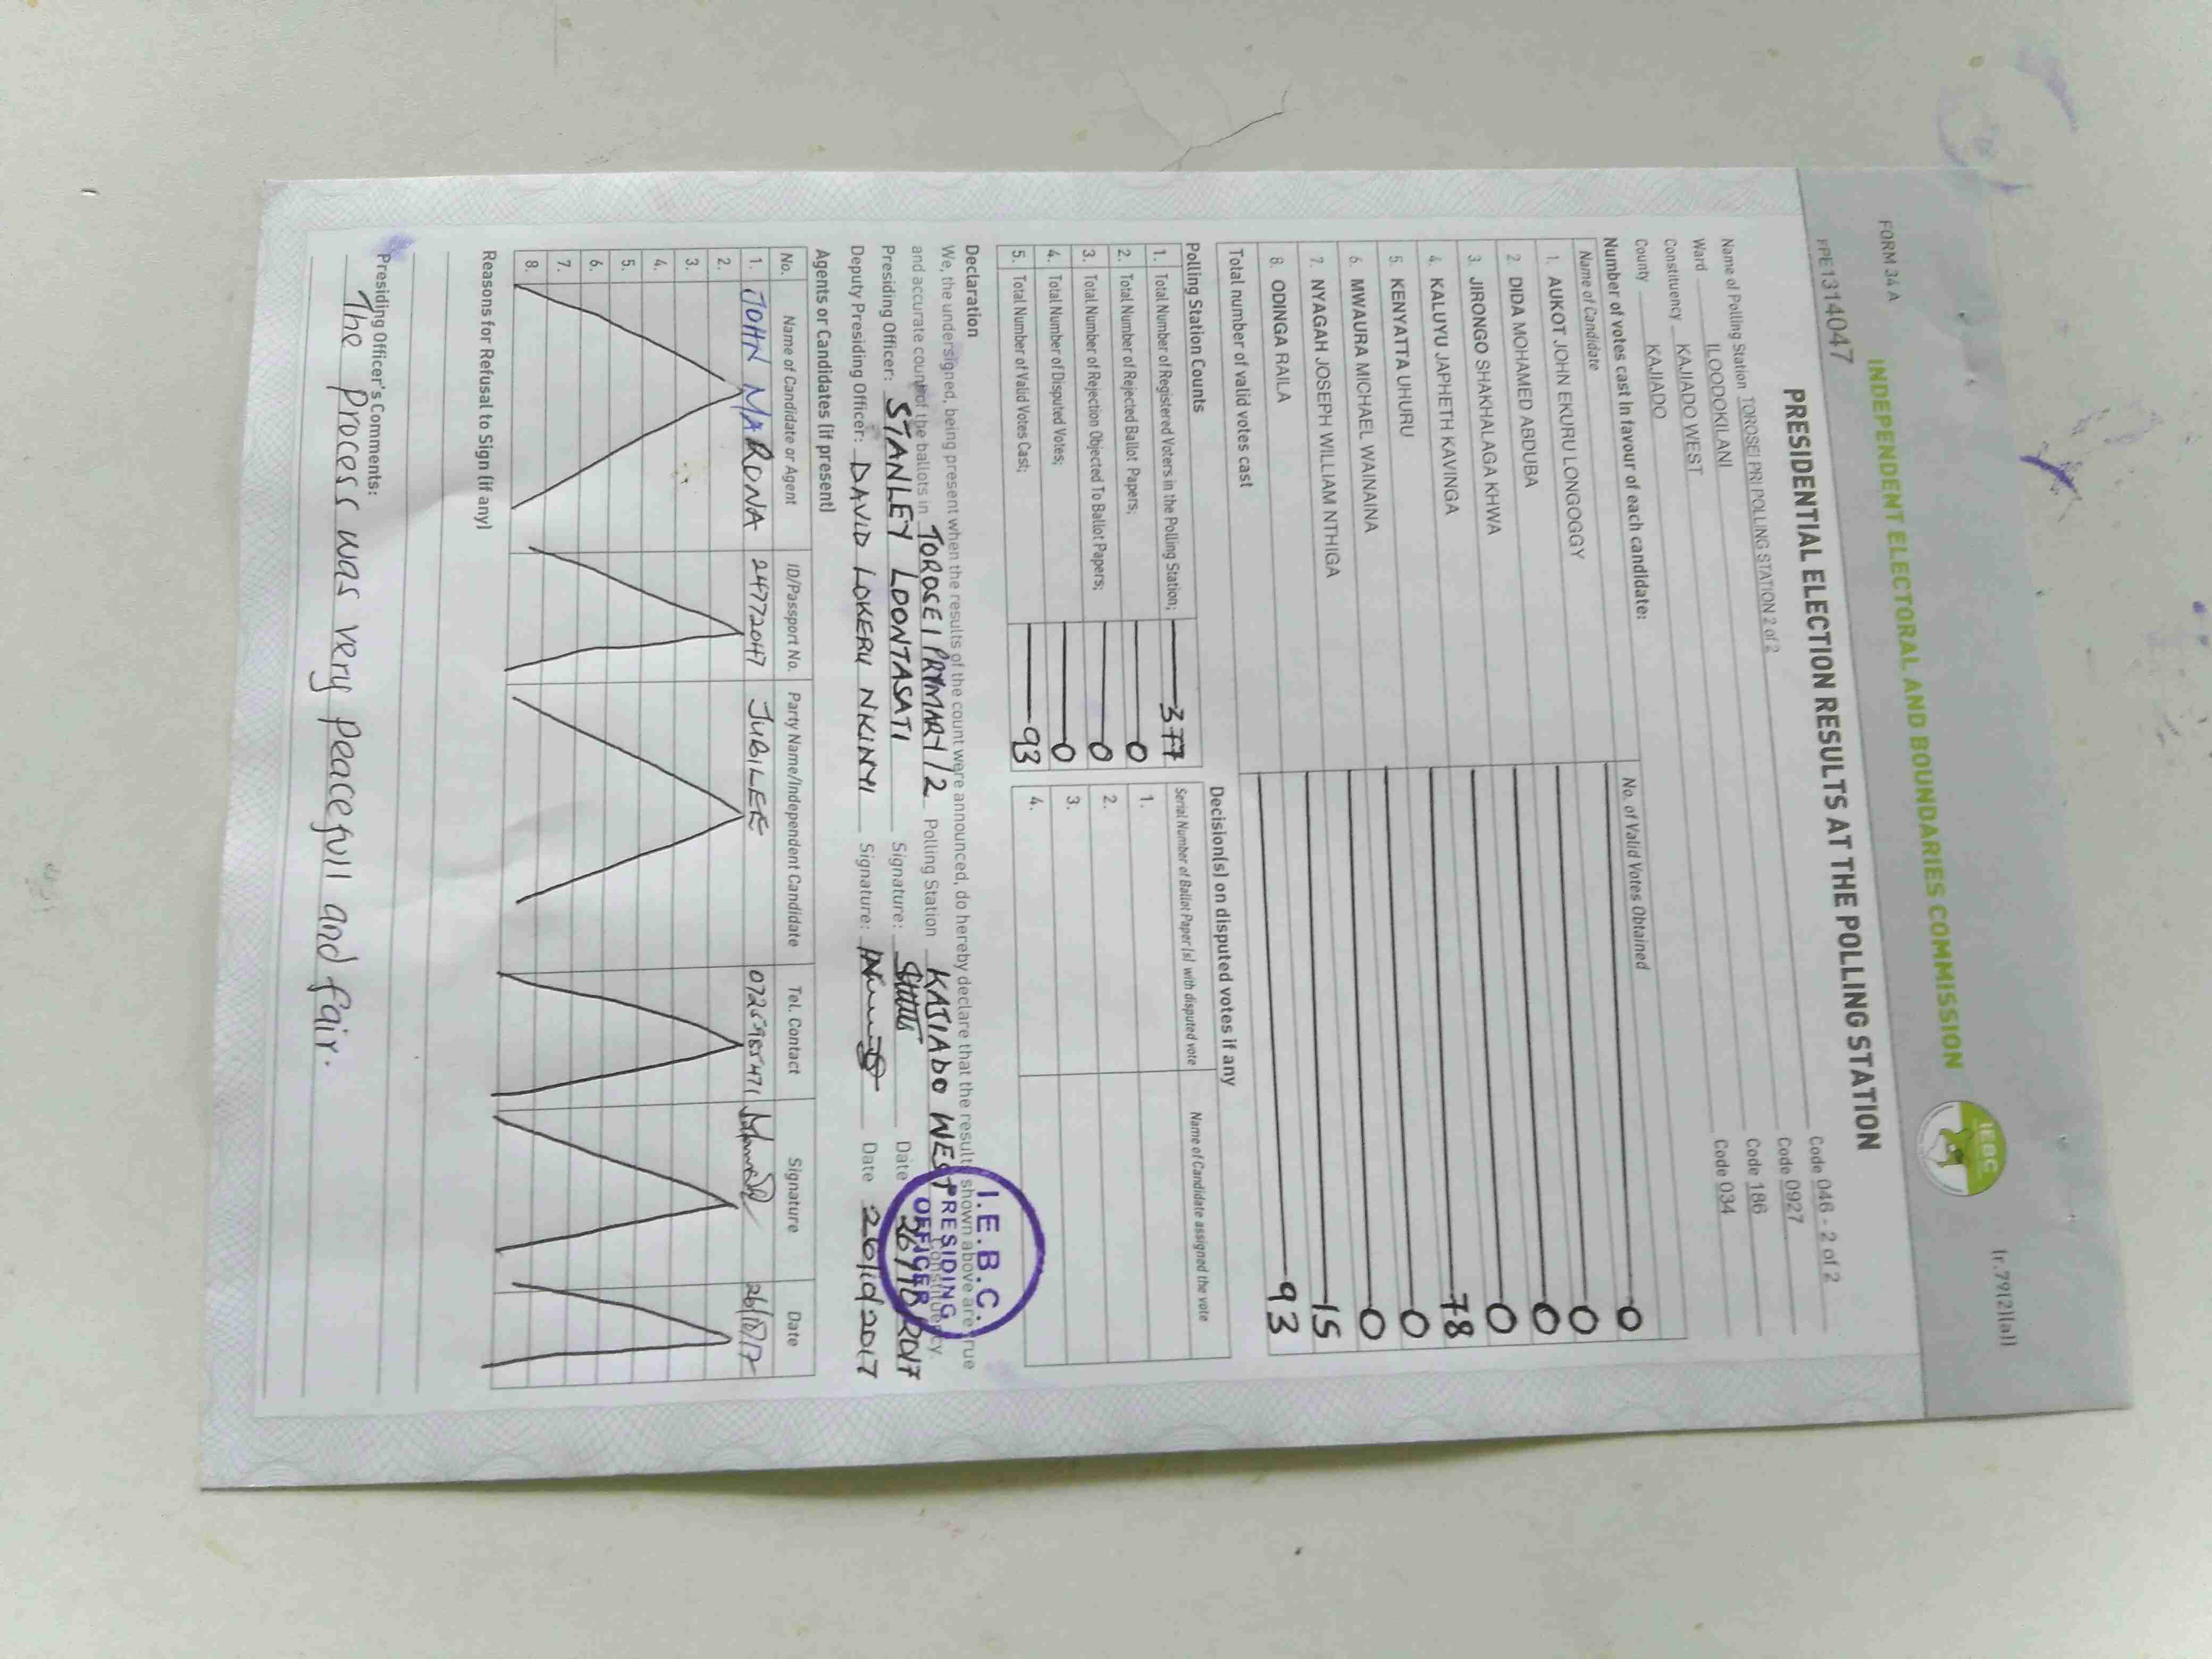 FORM 34A
Ir.79(2)(a)]
INDEPENDENT ELECTORAL AND BOUNDARIES COMMISSION
IEBC
PPE1314047
PRESIDENTIAL ELECTION RESULTS AT THE POLLING STATION
Name of Polling Station TOROSEI PRI POLLING STATION 2 of 2 Code 046 - 2 of 2
Ward ILOODOKILANI Code 0927
Constituency KAJIADO WEST Code 186
County KAJIADO Code 034
Number of votes cast in favour of each candidate:
Name of Candidate No. of Valid Votes Obtained
1. AUKOT JOHN EKURU LONGOGGY 0
2. DIDA MOHAMED ABDUBA 0
3. JIRONGO SHAKHALAGA KHWA 0
4. KALUYU JAPHETH KAVINGA 0
5. KENYATTA UHURU 78
6. MWAURA MICHAEL WAINAINA 0
7. NYAGAH JOSEPH WILLIAM NTHIGA 0
8. ODINGA RAILA 15
Total number of valid votes cast 93
Polling Station Counts
1. Total Number of Registered Voters in the Polling Station; 377
2. Total Number of Rejected Ballot Papers; 0
3. Total Number of Rejection Objected To Ballot Papers; 0
4. Total Number of Disputed Votes; 0
5. Total Number of Valid Votes Cast; 93
Decision(s) on disputed votes if any
Serial Number of Ballot Paper(s) with disputed vote Name of Candidate assigned the vote
1.
2.
3.
4.
Declaration
We, the undersigned, being present when the results of the count were announced, do hereby declare that the results shown above are true
and accurate count of the ballots in TOROSEI PRYMARY/2 Polling Station KAJIADO WEST Constituency.
Presiding Officer: STANLEY LOONTASATI Signature: Date 26/10/2017
Deputy Presiding Officer: DAVID LOKERU NKINYI Signature: Date 26/10/2017
I.E.B.C.
PRESIDING
OFFICER
Agents or Candidates (if present)
No. Name of Candidate or Agent ID/Passport No. Party Name/Independent Candidate Tel. Contact Signature Date
1. JOHN MARONA 24772047 JUBILEE 0725985471 26/10/17
2.
3.
4.
5.
6.
7.
8.
Reasons for Refusal to Sign (if any)
Presiding Officer's Comments:
The Process was very peacefull and fair.